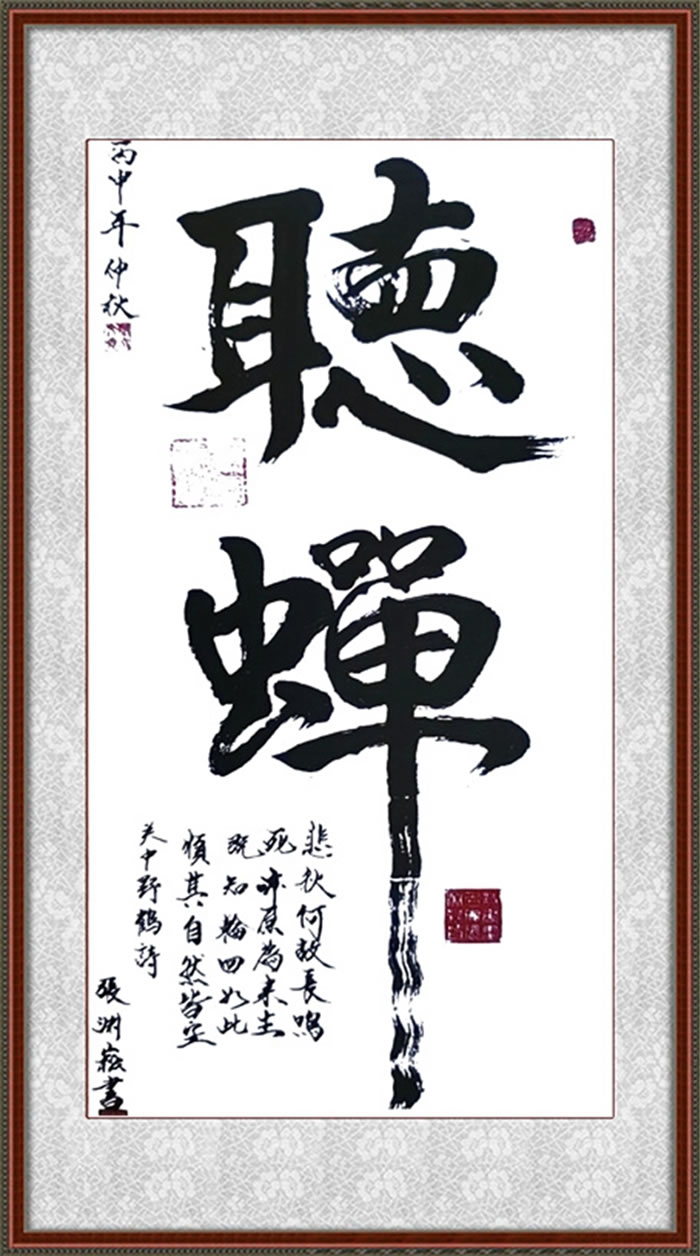 聽
蟬
悲秋何故長鳴
死亦原為來生
既知輪回如此
順其自然皆空
关中野鶴詩
丙申年仲秋
張洲菘書